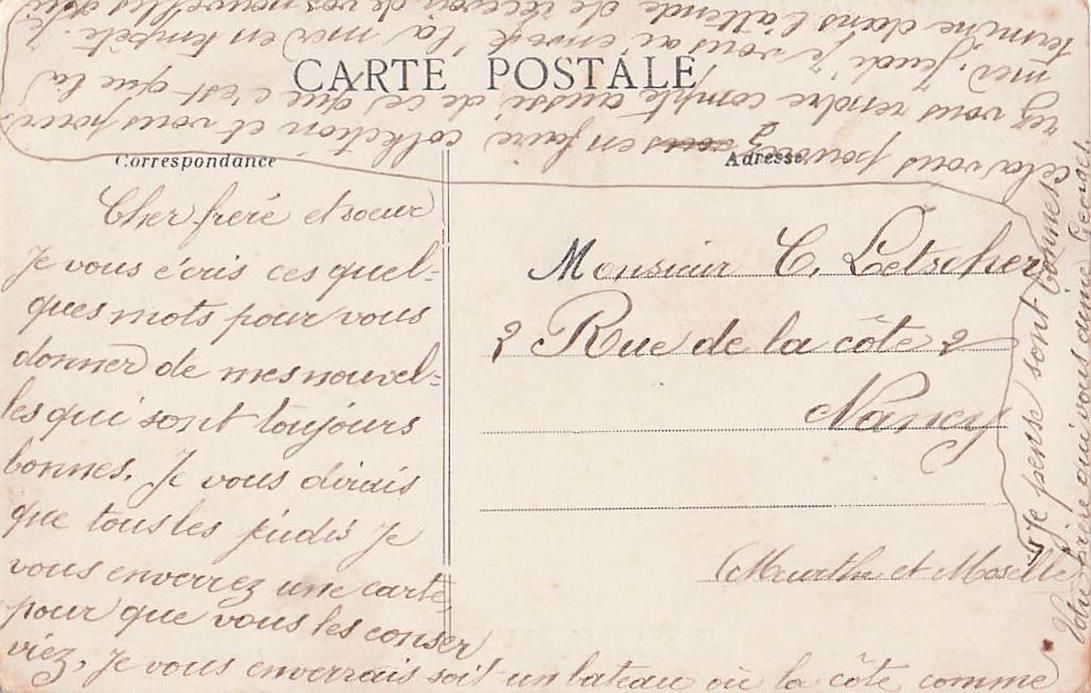 CARTE POSTALE
Correspondance
Adresse
Cher freré et soeur
Je vous écris ces quel=
ques mots pour vous
donner de mes nouvel=
les qui sont toujours
bonnes. Je vous dirais
que tous les jeudis Je
vous enverrez une carte,
pour que vous les conser
viez, Je vous enverrais soit un bateau où la côte comme
cela vous pouvrez en faire collection et vous pour=
rez vous rendre compte aussi de ce que c'est que la
mer. Jeudi Je vous ai envoyé la mer en tempête. Je
termine dans l'attende de recevoir de vos nouvelles qui
Je pense sont bonnes
Votre frère qui vous aime
Monsieur C. Letscher
2 Rue de la côte 2
Nancy
Meurthe et Moselle